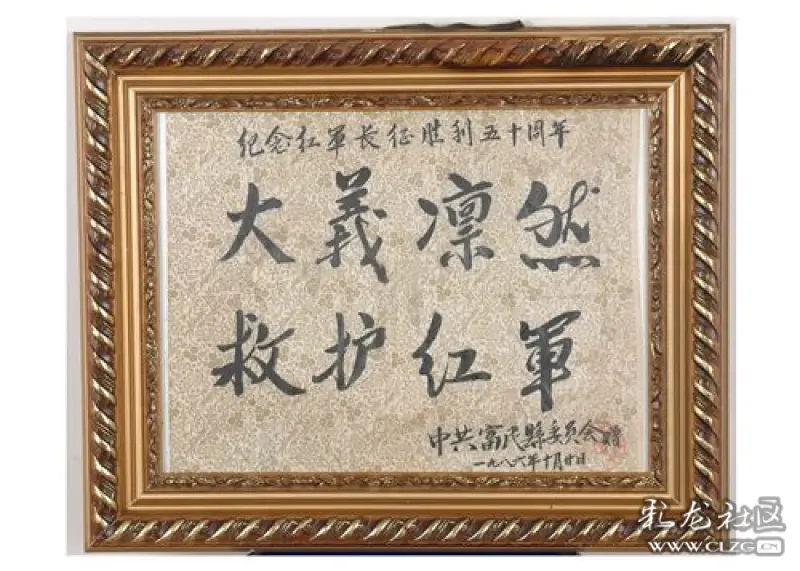 纪念红軍长征胜利五十周年
大義凛然
救护红軍
中共富民縣委员会贈
一九八六年十月廿日
彩龙社区
WWW.CLZG.CN